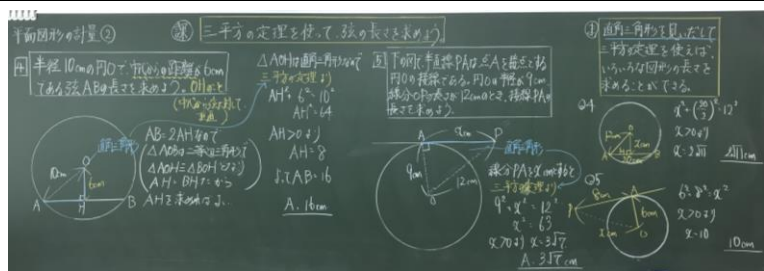 平面図形の計量②
課 三平方の定理を使って、弦の長さを求めよう。
半径10cmの円Oで、中心からの距離が6cm
である弦ABの長さを求めよう。
OHのこと
10cm
6cm
O
A
H
B
直角三角形
AB=2AHなので
△AOBは二等辺三角形で
△AOH≡△BOHとなり
AH=BHだから
AHを求めればよい
△AOHは直角三角形なので
三平方の定理より
AH²+6²=10²
AH²=64
AH>0より
AH=8
よってAB=16
A. 16cm
下の図で、直線PAは点Aを接点とする
円Oの接線である。円Oの半径が9cm
線分OPの長さが12cmのとき、接線PAの
長さを求めよう。
A
P
9cm
12cm
O
直角三角形
線分PAをxcmとすると
三平方の定理より
9²+x²=12²
x²=63
x>0より x=3√7
A. 3√7cm
直角三角形を見いだして
三平方の定理を使えば、
いろいろな図形の長さを
求めることができる。
Q4
12cm
A
B
x>0より
Q5
8cm
A
P
6cm
xcm
O
6²+8²=x²
x>0より
x=10
10cm